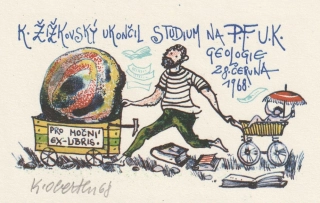 K. ŽIŽKOVSKÝ UKONČIL STUDIUM NA PF U.K.
GEOLOGIE
28. ČERVNA
1968
PRO MOČNÍ
EX-LIBRIS.